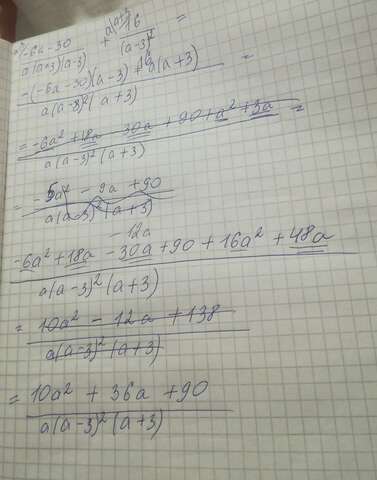 -6a-30 / a(a+3)(a-3) + 16 / (a-3)² =
(-6a-30)(a-3) + 16a(a+3) / a(a-3)²(a+3) =
= -6a² + 18a - 30a + 90 + a² + 3a / a(a-3)²(a+3) =
= -5a² - 9a + 90 / a(a-3)²(a+3)
-12a
-6a² + 18a - 30a + 90 + 16a² + 48a / a(a-3)²(a+3)
= 10a² - 12a + 138 / a(a-3)²(a+3)
= 10a² + 36a + 90 / a(a-3)²(a+3)